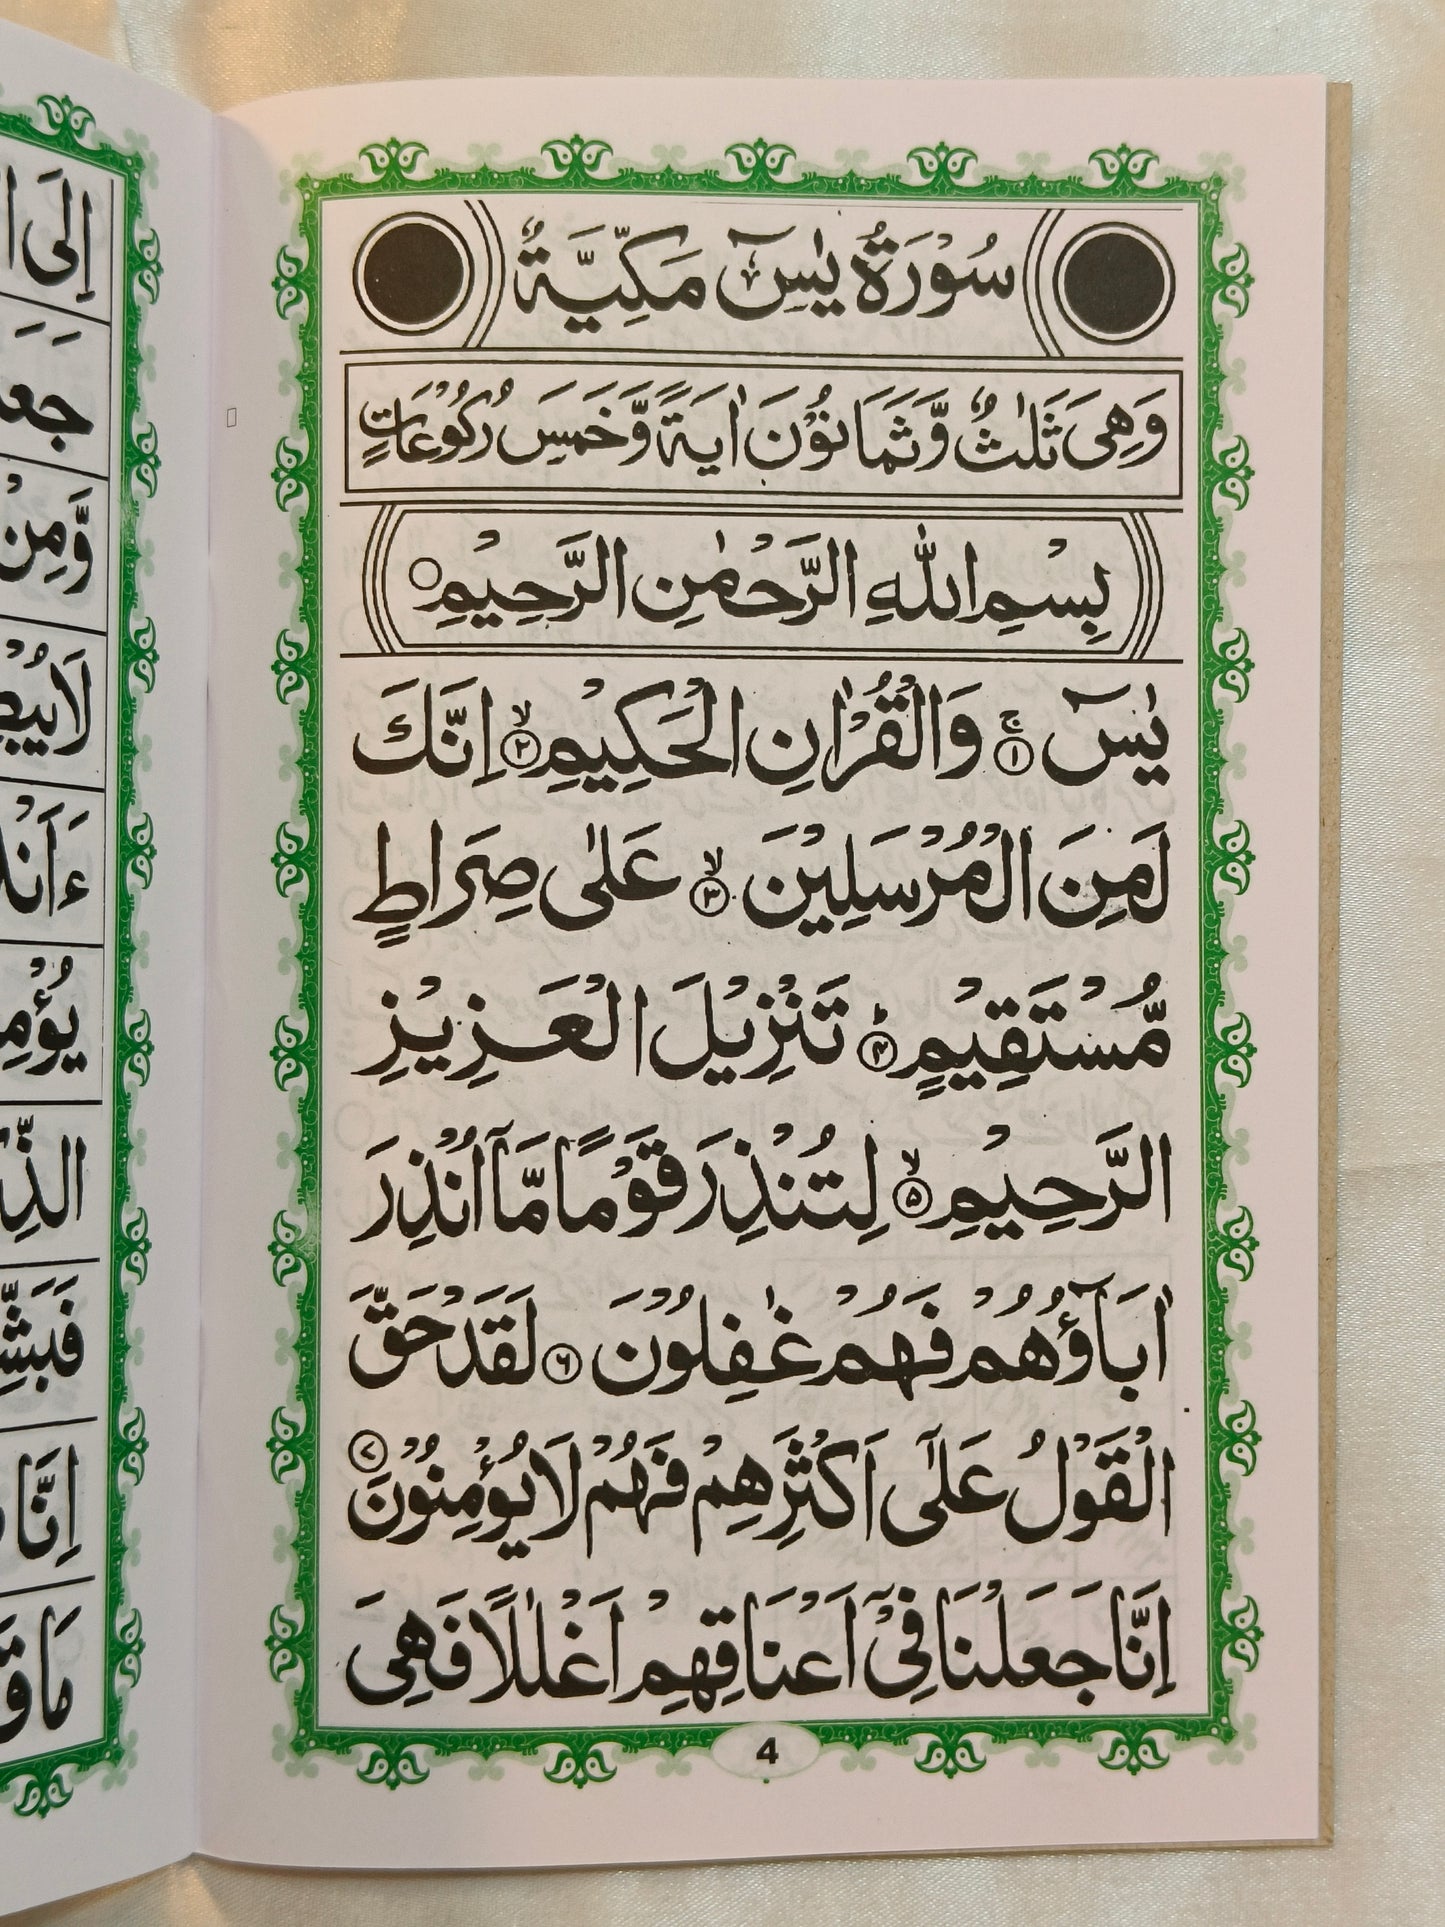 سُوْرَةُ يٰسٓ مَكِّيَّةٌ
وَهِيَ ثَلٰثٌ وَّثَمَانُوْنَ اٰيَةً وَّخَمْسَ رُكُوْعَاتٍ
بِسْمِ اللّٰهِ الرَّحْمٰنِ الرَّحِيْمِ ○
يٰسٓ ۚ﴿۱﴾ وَالْقُرْاٰنِ الْحَكِيْمِ ۙ﴿۲﴾ اِنَّكَ
لَمِنَ الْمُرْسَلِيْنَ ۙ﴿۳﴾ عَلٰى صِرَاطٍ
مُّسْتَقِيْمٍ ؕ﴿۴﴾ تَنْزِيْلَ الْعَزِيْزِ
الرَّحِيْمِ ۙ﴿۵﴾ لِتُنْذِرَ قَوْمًا مَّآ اُنْذِرَ
اٰبَآؤُهُمْ فَهُمْ غٰفِلُوْنَ ﴿۶﴾ لَقَدْ حَقَّ
الْقَوْلُ عَلٰٓى اَكْثَرِهِمْ فَهُمْ لَا يُؤْمِنُوْنَ ﴿۷﴾
اِنَّا جَعَلْنَا فِيْٓ اَعْنَاقِهِمْ اَغْلٰلًا فَهِيَ
4
اِلَى
وَّمِنْ
اِنَّا